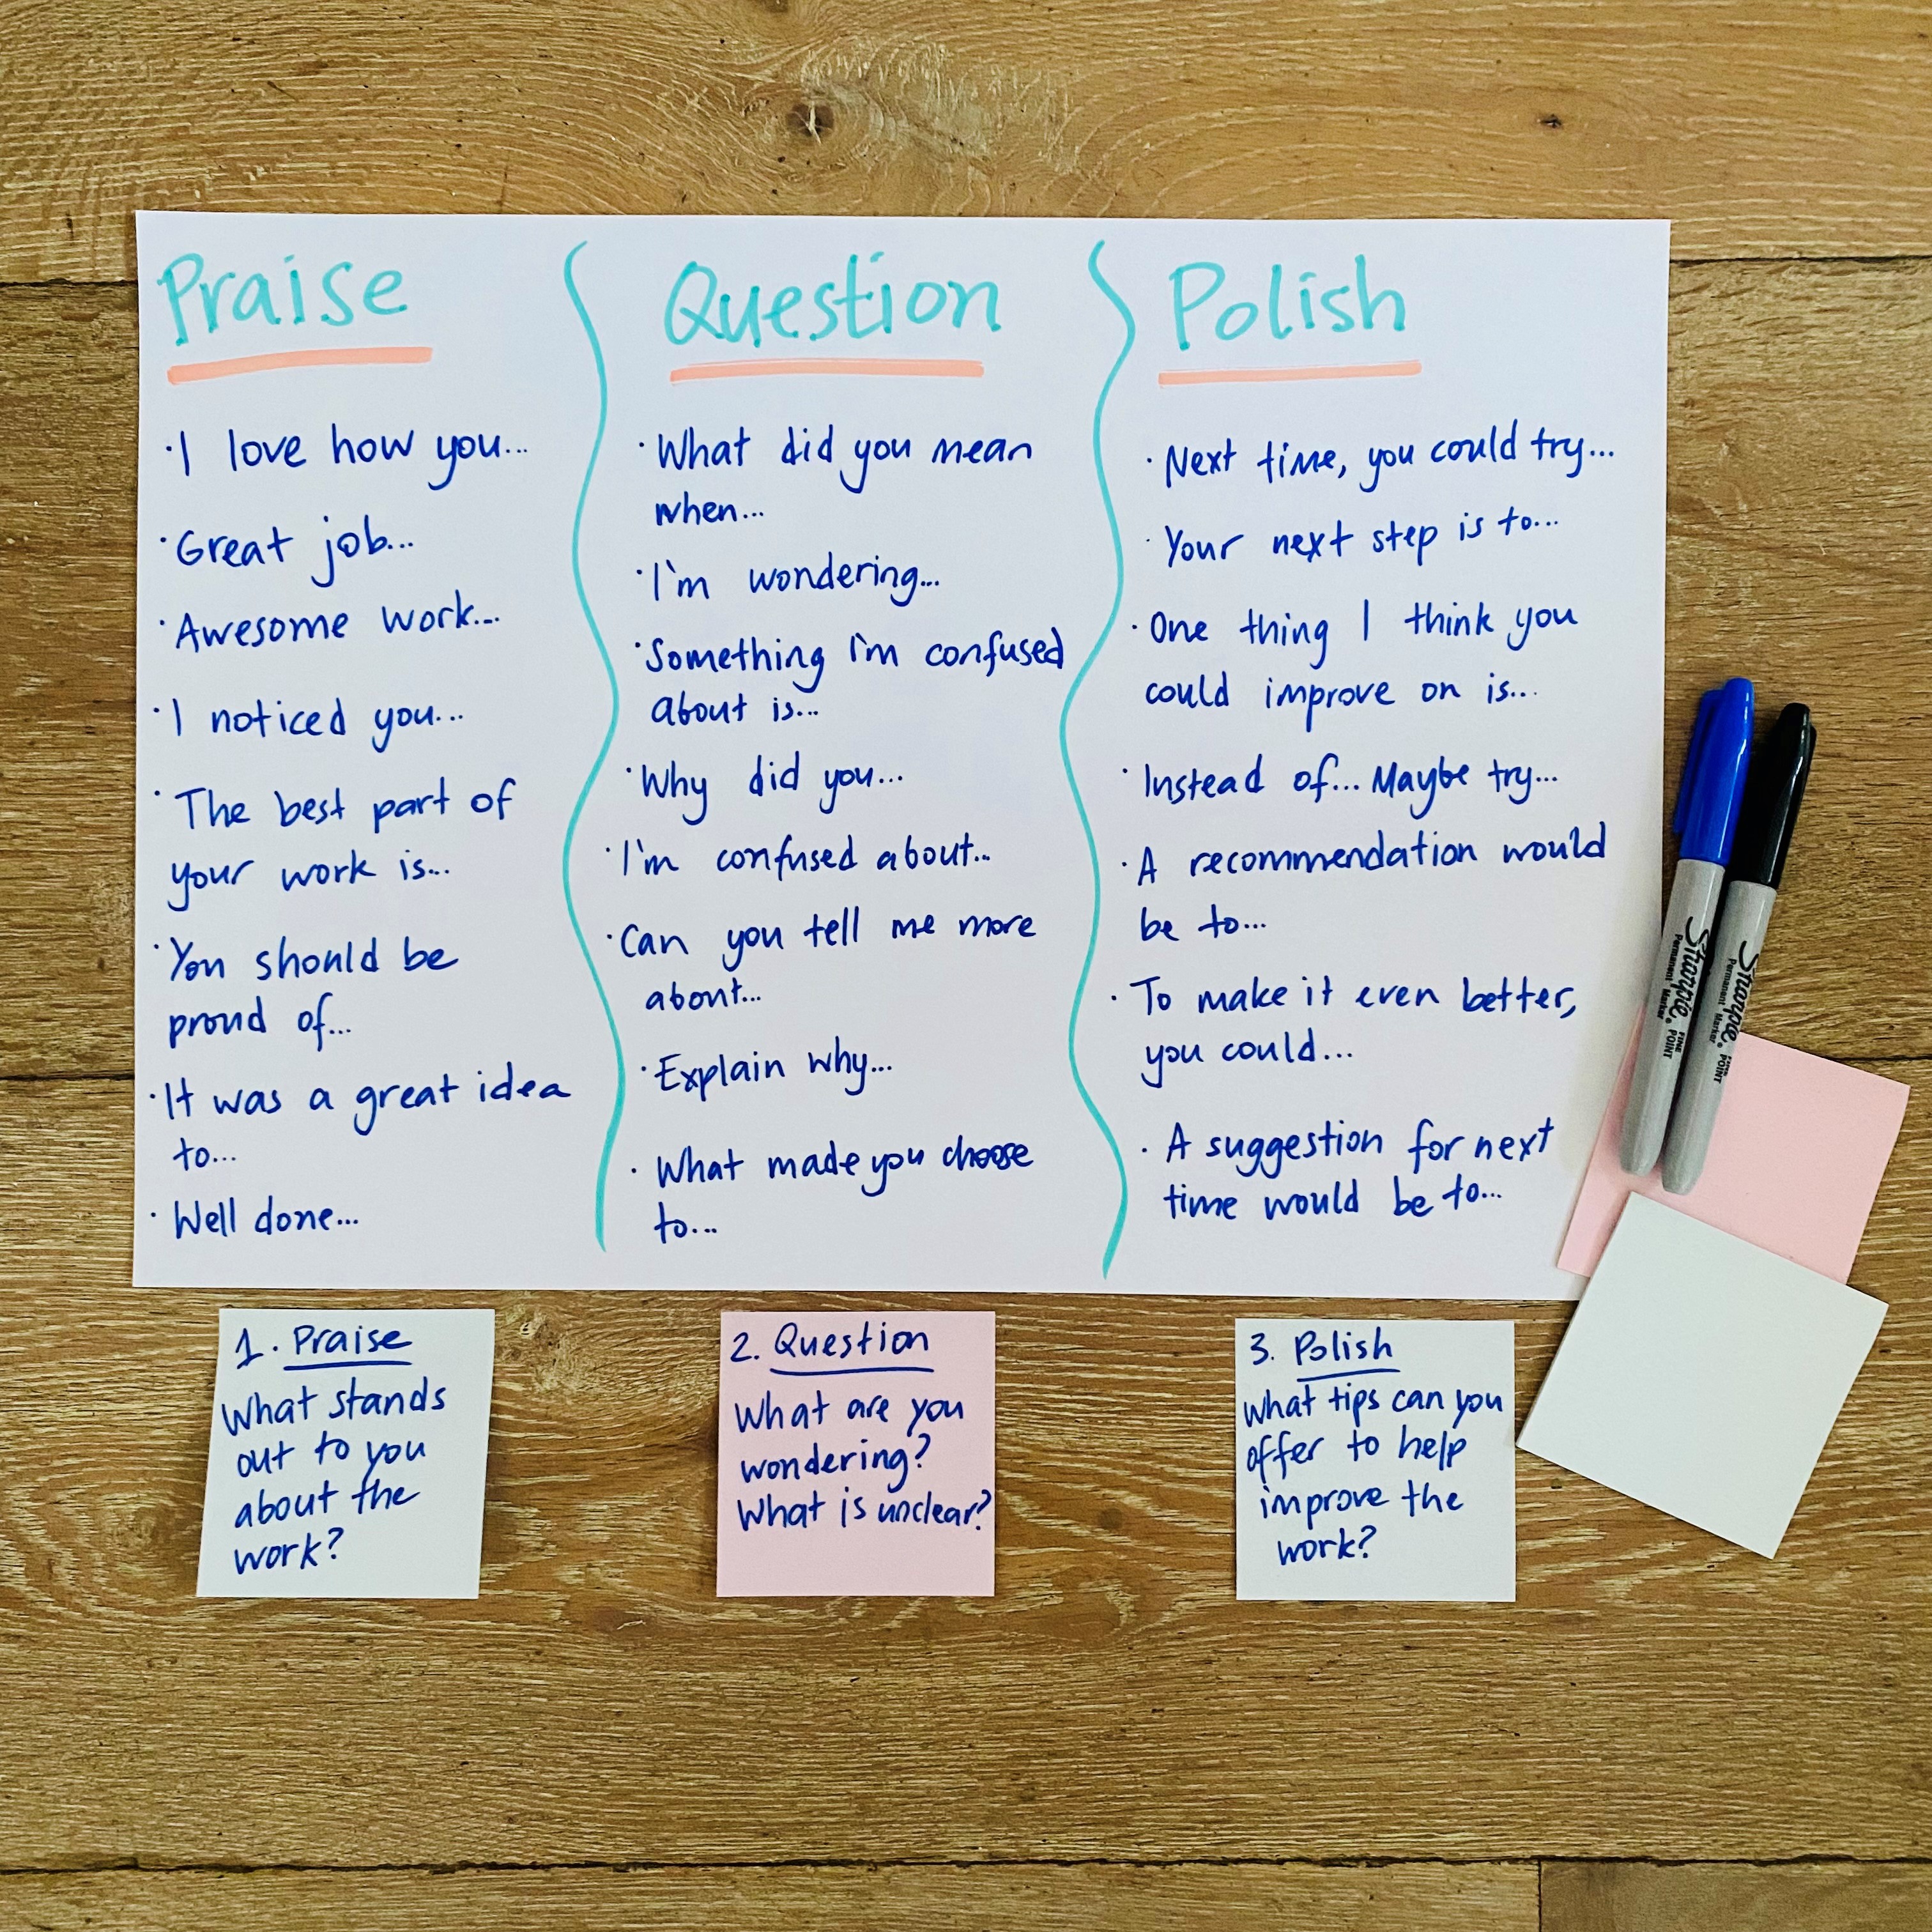 Praise
·I love how you...
·Great job...
·Awesome work...
·I noticed you...
·The best part of
your work is...
·You should be
proud of...
·It was a great idea
to...
·Well done...
Question
·What did you mean
when...
·I'm wondering...
·Something I'm confused
about is...
·Why did you...
·I'm confused about...
·Can you tell me more
about...
·Explain why...
·What made you choose
to...
Polish
·Next time, you could try...
·Your next step is to...
·One thing I think you
could improve on is...
·Instead of... Maybe try...
·A recommendation would
be to...
·To make it even better,
you could...
·A suggestion for next
time would be to...
Sharpie.
Permanent Marker
FINE
POINT
Sharpie.
Permanent Marker
FINE
POINT
1. Praise
What stands
out to you
about the
work?
2. Question
What are you
wondering?
What is unclear?
3. Polish
What tips can you
offer to help
improve the
work?